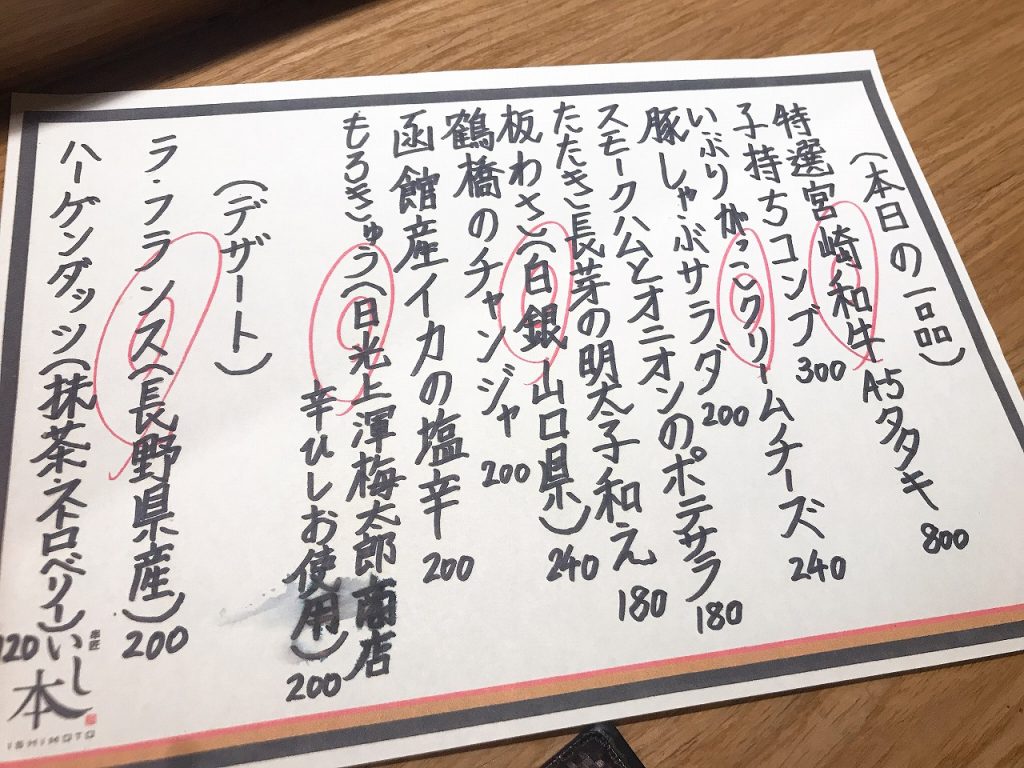 （本日の一品）
特選宮崎和牛A5タタキ 800
子持ちコンブ 300
いぶりがっこクリームチーズ 240
豚しゃぶサラダ 200
スモークハムとオニオンのポテサラ 180
たたき長芋の明太子和え 180
板わさ（白銀 山口県） 240
鶴橋のチャンジャ 200
函館産イカの塩辛 200
もろきゅう（日光上澤梅太郎商店
辛ひしお使用） 200
（デザート）
ラ・フランス（長野県産） 200
ハーゲンダッツ（抹茶ネロベリー） 120
串匠
いし本
ISHIMOTO